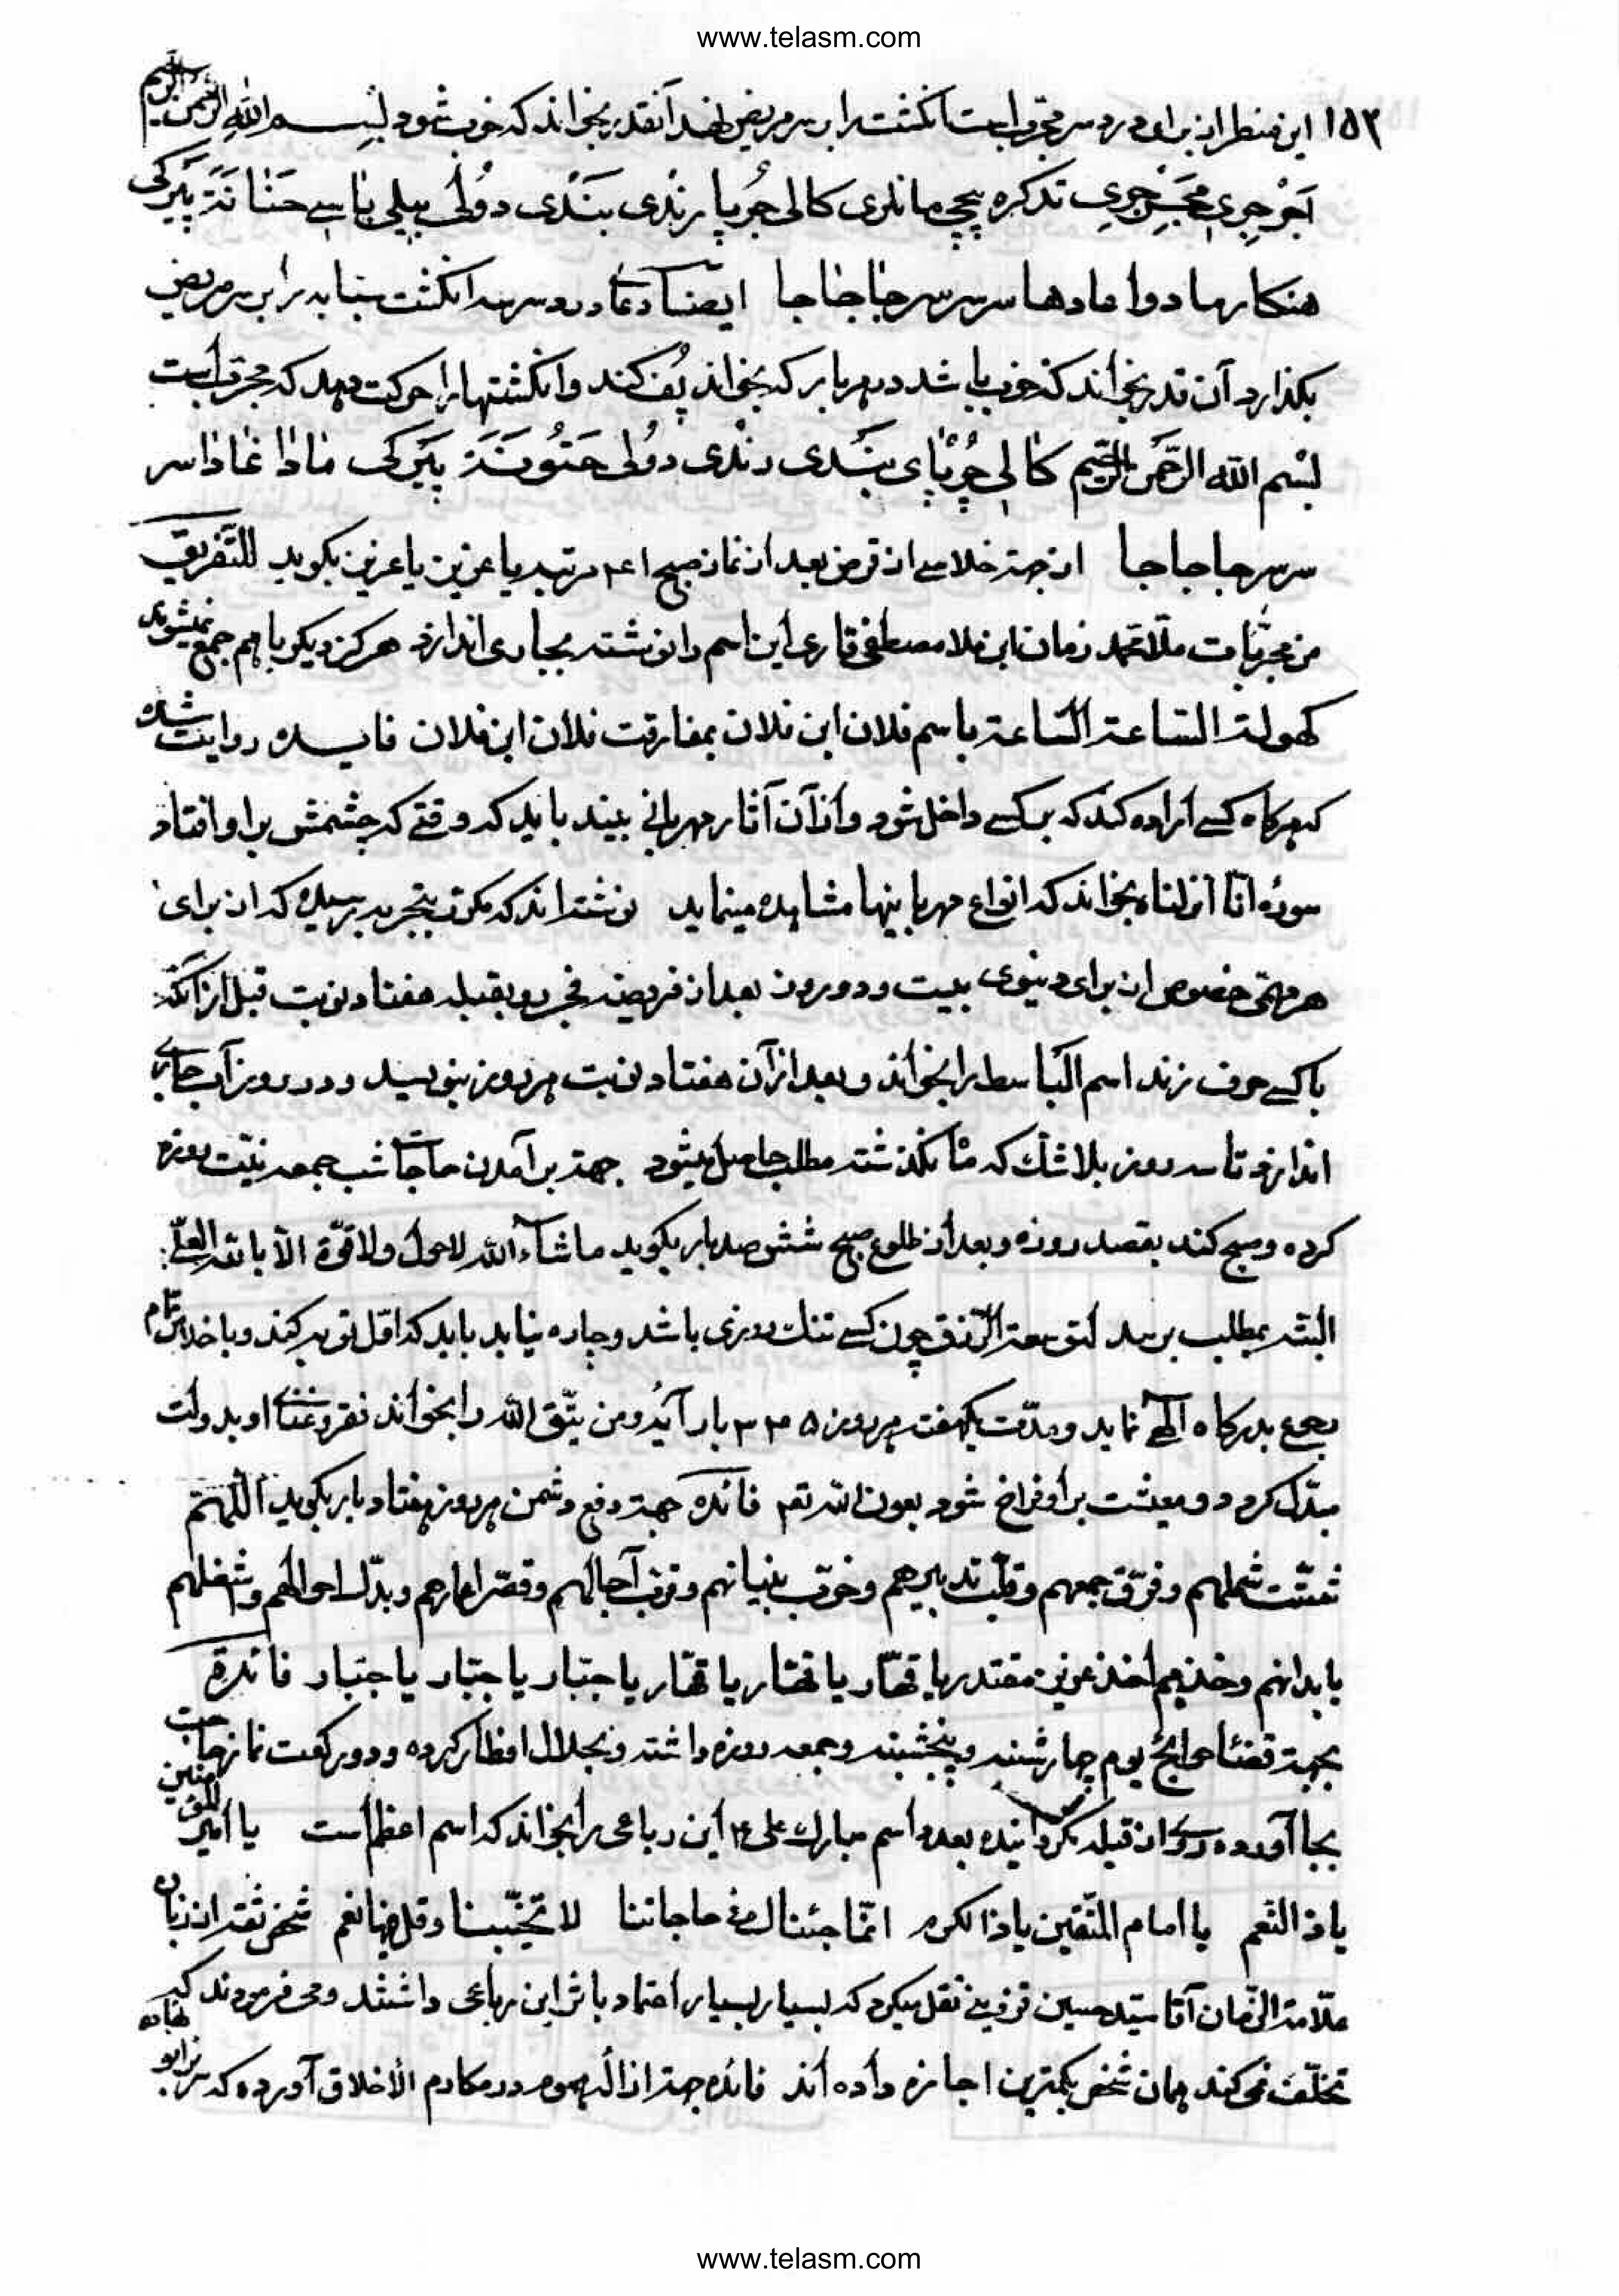 www.telasm.com
۱۵۳ این منطر از برای درد سر مجرب است انکشت را بر سر مریض نهد آنقدر بخواند که خوب شود بسم الله الرحمن الرحیم
تذکره مانلری کالی جُرپا رندی بندی دولی بیلی پیَرکی
هنکارها دوا مادها سر سر سر جا جا جا جا ایضا دعاء درد سر سه انکشت سبابه برابر سر مریض
بکذارد آن قدر بخواند که خوب باشد در هر بار که بخواند پُف کند و انکشتها را حرکت دهد که مجرب است
بسم الله الرحمن الرحیم کالی جُرپای بندی رندی دولی پیَرکی ماذا غاذا سر
سر سر جا جا جا از جهة خلاصی از قرض بعد از نماز صبح ۱۴۰ مرتبه یا عزیز یا عزیز بکوید للتفریق
من مجربات ملا محمد زمان ابن ملا مصطفی قاری این اسم را نوشته بجاری اندازد هرکز دیکر با هم جمع نمیشوند
کهولة الساعة الساعة باسم فلان ابن فلان بمفارقت فلان ابن فلان فایده روایت شده
که هرکاه کسی اراده کند که بر کسی داخل شود و از آن آثار مهربانی بیند باید که وقتی که چشمش بر او افتاد
سوره انا انزلناه بخواند که انواع مهربانیها مشاهده مینماید نوشته اند که مکرر بتجربه رسیده که از برای
هر مهمی خصوص از برای دنیوی بیست و دو روز بعد از فریضه فجر رو بقبله هفتاد نوبت قبل از آنکه
با کسی حرف زند اسم الباسط را بخواند و بعد از آن هفتاد نوبت هر روز بنویسد و در روز آب جاری
اندازد تا سه روز بلا شک که نکذشته مطلب حاصل میشود جهة بر آمدن حاجات شب جمعه نیت روزه
کرده و صبح کند بقصد روزه و بعد از طلوع صبح ششصد بار بکوید ما شاء الله لا حول ولا قوة الا بالله العلی
البته بمطلب برسد لتوسعة الرزق چون کسی تنک روزی باشد و چاره نیابد باید که اول توبه کند و با خلاص تمام
رجوع بدرکاه الهی نماید و مدت یکهفته هر روز ۳۳۵ بار آیه ومن یتق الله را بخواند فقر و غنای او بدولت
مبدل کردد و معیشت بر او فراخ شود بعون الله تع فائده جهة دفع دشمن هر روز هفتاد بار بکوید اللهم
شتت شملهم وفرق جمعهم وقلب تدبیرهم وخرب بنیانهم وقرب آجالهم وقصر اعمارهم وبدل احوالهم واشغلهم
بابدانهم وخذهم اخذ عزیز مقتدر یا قهار یا قهار یا قهار یا جبار یا جبار یا جبار فائدة
بجهة قضاء حوائج یوم چهارشنبه و پنجشنبه و جمعه روزه داشته و بحلال افطار کرده و دو رکعت نماز حاجت
بجا آورده روی از قبله نکردانیده بعدد اسم مبارک علی ع این رباعی را بخواند که اسم اعظم است یا امیر المؤمنین
یا ذا النعم یا امام المتقین یا ذا الکرم انما جئناک فی حاجاتنا لا تخیبنا وقل فیها نعم شخص ثقه از زبان
علامة الزمان آقا سید حسین قزوینی نقل میکرد که بسیار بسیار اعتماد باین رباعی داشتند و می فرمودند که
تخلف نمی کند همان شخص بکمترین اجازه داده اند فائده جهة ازاله هموم در مکارم الاخلاق آورده که
www.telasm.com